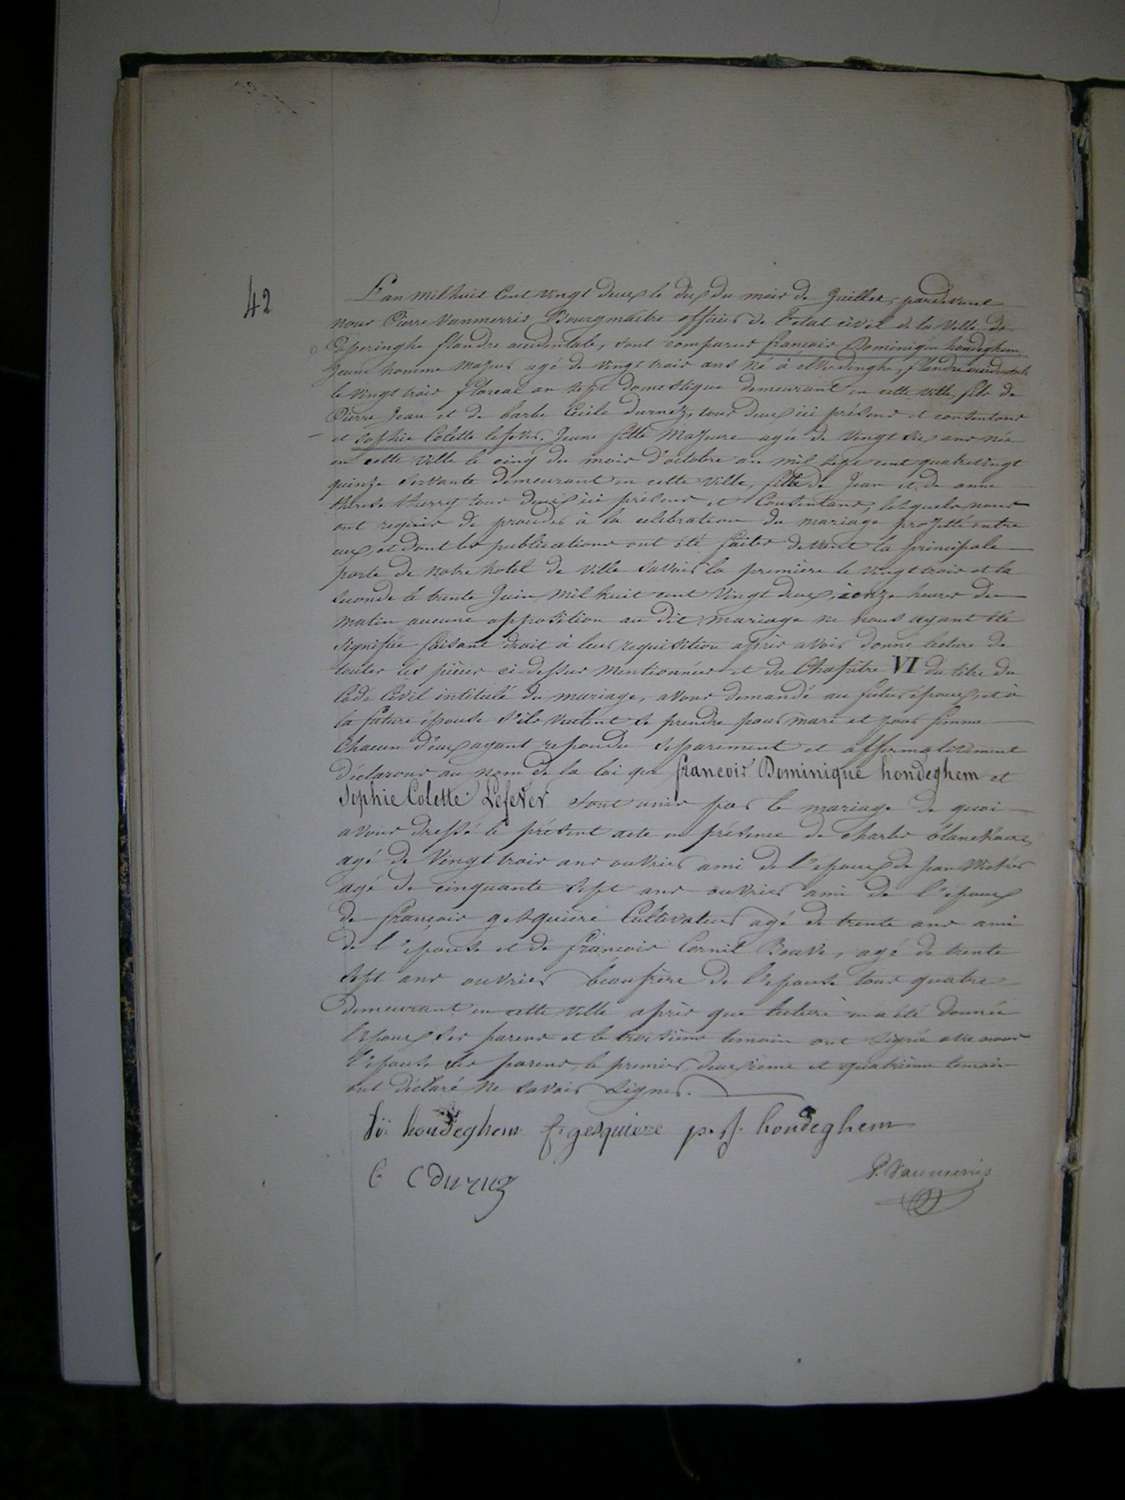 42
L'an mil huit cent vingt deux le dix du mois de Juillet, pardevant
nous Pierre Vanmerris Bourgmaitre officier de l'etat civil de la Ville de
Poperinghe flandre occidentale, sont comparus françois Dominique hondeghem
Jeune homme majeur agé de vingt trois ans né à elverdinghe, flandre occidentale
le vingt trois floreal an sept domestique demeurant en cette ville, fils de
Pierre Jean et de barbe Cecile durnez, tous deux ici présens et consentans
et Sophie Colette lefever Jeune fille Majeure agée de Vingt six ans née
en cette Ville le cinq du mois d'octobre an mil sept cent quatrevingt
quinze Servante demeurant en cette Ville, fille de Jean et de anne
therese therry tous deux ici présens et Consentans, lesquels nous
ont requis de proceder à la celebration du mariage projetté entre
eux et dont les publications ont été faites devant la principale
porte de notre hotel de Ville Savoir la premiere le vingt trois et la
Seconde le trente Juin mil huit cent Vingt deux, à onze heures du
matin aucune opposition au dit mariage ne nous ayant été
Signifiée faisant droit à leur requisition après avoir donné lecture de
toutes les pièces ci-dessus mentionnées et du Chapitre VI du titre du
Code Civil intitulé du mariage, avons demandé au futur époux et à
la future épouse s'ils veulent se prendre pour mari et pour femme
Chacun d'eux ayant repondu separement et affirmativement
déclarons au nom de la loi que françois Dominique hondeghem et
Sophie Colette Lefever sont unis par le mariage de quoi
avons dressé le présent acte en présence de Charles
agé de Vingt trois ans ouvrier ami de l'époux de Jean
agé de cinquante sept ans ouvrier ami de l'epoux
de françois gesquiere Cultivateur agé de trente ans ami
de l'epouse et de françois Cornil agé de trente
sept ans ouvrier beaufrère de l'epouse tous quatre
demeurant en cette Ville après que lecture en a été donnée
l'epoux ses parens et le troisième temoin ont signé avec nous
l'epouse ses parens, le premier, deuxieme et quatrième temoin
ont déclaré ne savoir Signer.
hondeghem f: gesquiere p. J. hondeghem
B C durnez
P. Vanmerris